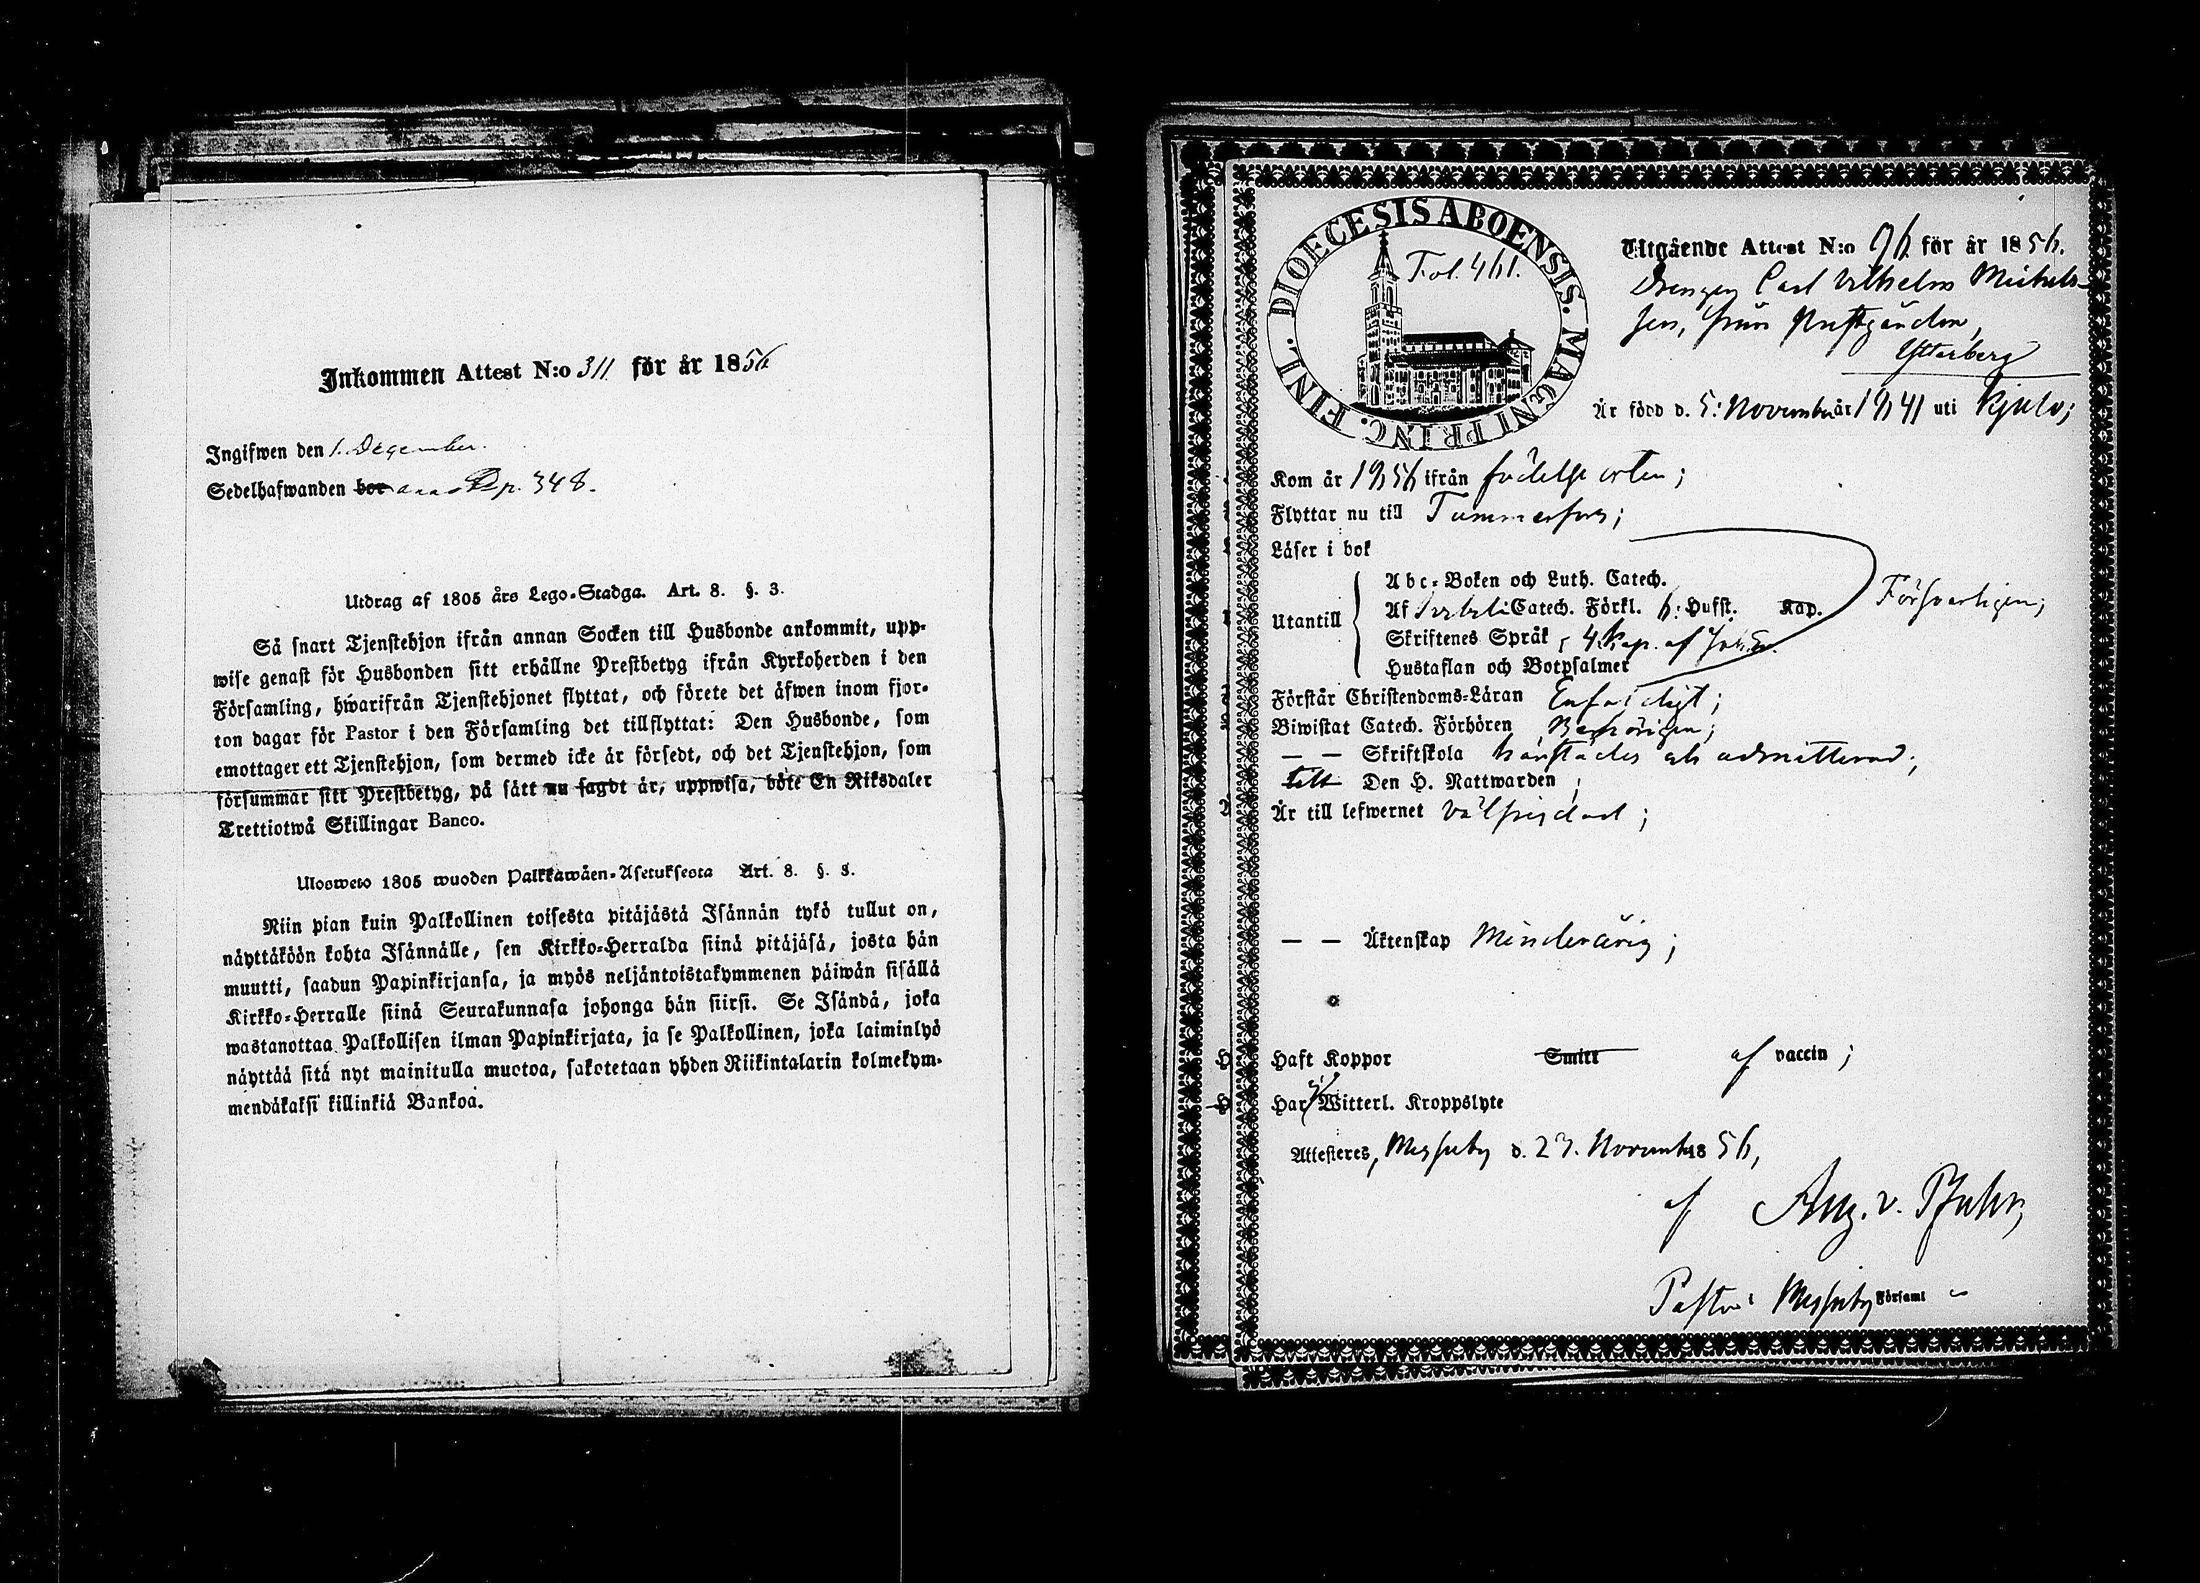 Inkommen Attest N:o 311 för år 1856
Ingifwen den 1. December.
Sedelhafwanden bor p. 348.
Utdrag af 1805 års Lego-Stadga. Art. 8. §. 3.
Så snart Tjenstehjon ifrån annan Socken till Husbonde ankommit, upp-
wise genast för Husbonden sitt erhållne Prestbetyg ifrån Kyrkoherden i den
Församling, hwarifrån Tjenstehjonet flyttat, och förete det äfwen inom fjor-
ton dagar för Pastor i den Församling det tillflyttat: Den Husbonde, som
emottager ett Tjenstehjon, som dermed icke är försedt, och det Tjenstehjon, som
försummar sitt Prestbetyg, på sätt nu sagdt är, uppwisa, böte En Riksdaler
Trettiotwå Skillingar Banco.
Ulosweto 1805 wuoden Palkkawäen-Asetuksesta Art. 8. §. 3.
Niin pian kuin Palkollinen toisesta pitäjästä Isännän tykö tullut on,
näyttäköön kohta Isännälle, sen Kirkko-Herralda siinä pitäjäsä, josta hän
muutti, saadun Papinkirjansa, ja myös neljäntoistakymmenen päiwän sisällä
Kirkko-Herralle siinä Seurakunnasa johonga hän siirsi. Se Isändä, joka
wastanottaa Palkollisen ilman Papinkirjata, ja se Palkollinen, joka laiminlyö
näyttää sitä nyt mainitulla muotoa, sakotetaan yhden Riikintalarin kolmekym-
mendäkaksi killinkiä Bankoa.
DIOECESIS ABOENSIS. MAGNI PRINC. FINL.
Fol. 461.
Utgående Attest N:o 96 för år 1856.
Drengen Carl Vilhelm Michels-
son, från Prestgården,
Ytterberg
Är född d. 5: November år 1841 uti Kjulo;
Kom år 1856 ifrån födelse orten;
Flyttar nu till Tammerfors;
Läser i bok
Utantill
Abc-Boken och Luth. Catech.
Af Catech. Förkl. 6: Hufst. Kap.
Skriftenes Språk, 4. Kap. af
Hustaflan och Botpsalmer
Försvarligen;
Förstår Christendoms-Läran Enfaldigt;
Biwistat Catech. Förhören Behörigen;
— — Skriftskola härstädes och admitterad;
till Den H. Nattwarden;
Är till lefwernet välfrejdad;
— — Äktenskap Minderårig;
Haft Koppor Smitt af vaccin;
Har ej Witterl. Kroppslyte
Attesteres, Messuby d. 23. November 1856,
af Aug. v. Pfaler,
Pastor i Messuby Församl